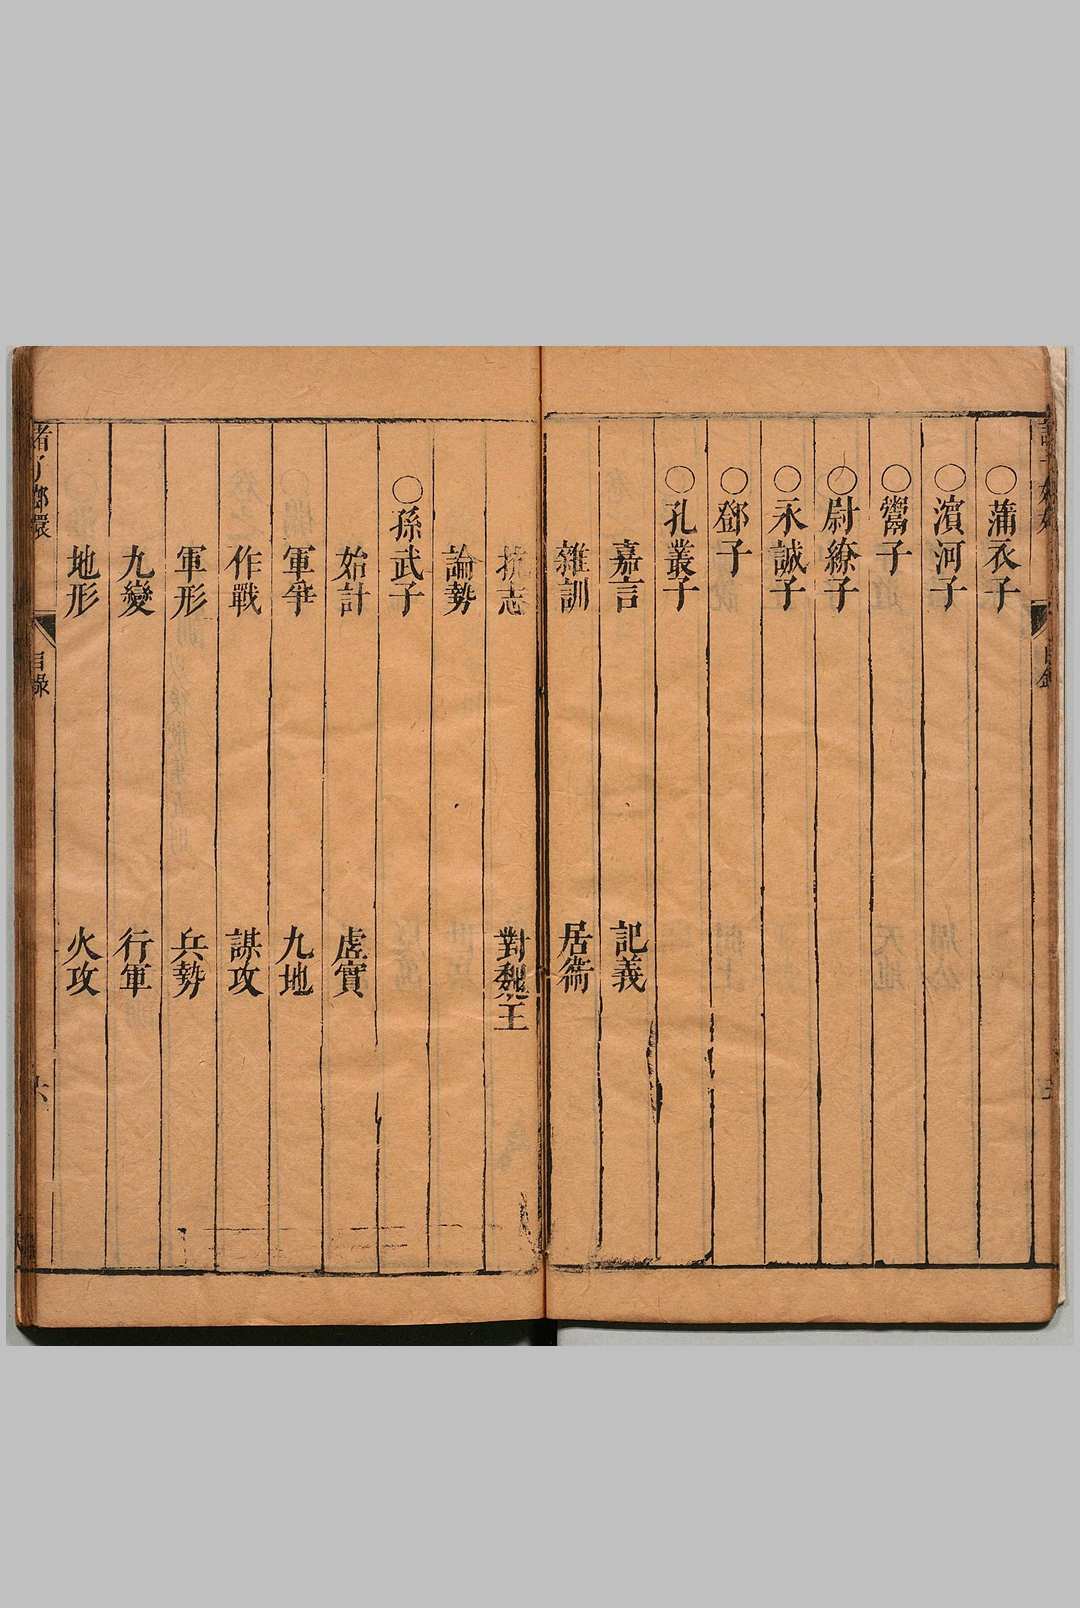 ○蒲衣子
○濵河子
○鬻子
○尉繚子
○永誠子
○鄧子
○孔叢子
嘉言 記義
雜訓 居衞
抗志 對魏王
論勢
○孫武子
始計 虛實
軍爭 九地
作戰 謀攻
軍形 兵勢
九變 行軍
地形 火攻
目錄